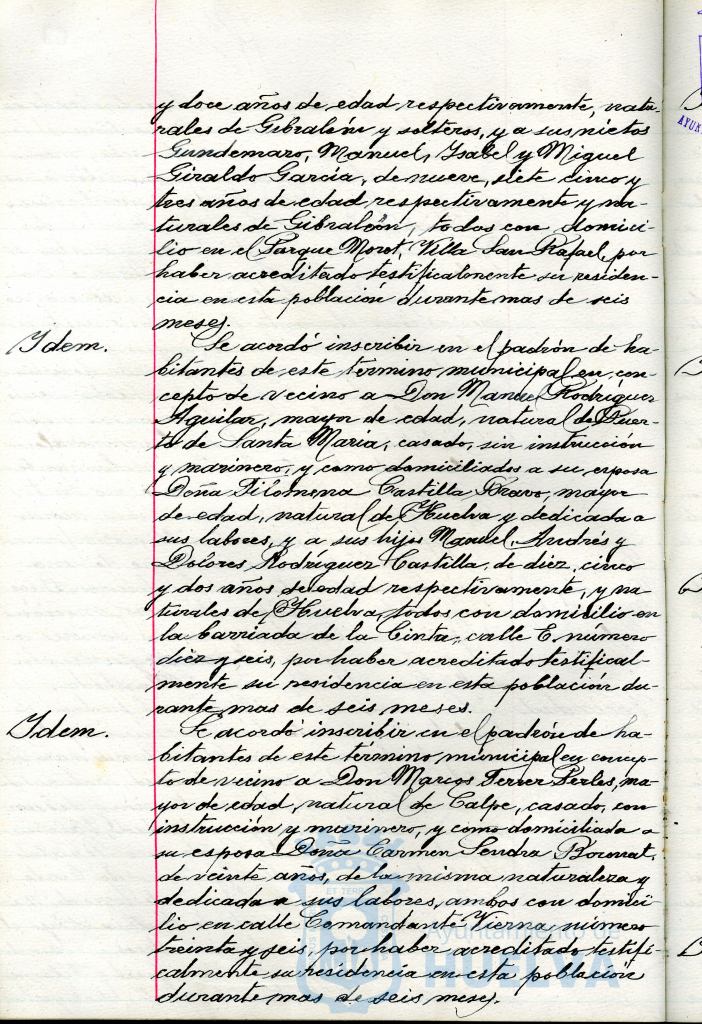 y doce años de edad respectivamente, natu-
rales de Gibraleón y solteros, y a sus nietos
Gundemaro, Manuel, Isabel y Miguel
Giraldo Garcia, de nueve, siete cinco y
tres años de edad respectivamente y na-
turales de Gibraleón, todos con domici-
lio en el Parque Moret, Villa San Rafael, por
haber acreditado testificalmente su residen-
cia en esta población durante mas de seis
meses.
Idem.
Se acordó inscribir en el padrón de ha-
bitantes de este término municipal en con-
cepto de vecino a Don Manuel Rodríguez
Aguilar, mayor de edad, natural de Puer-
to de Santa María, casado, sin instrucción
y marinero, y como domiciliados a su esposa
Doña Filomena Castilla Bravo, mayor
de edad, natural de Huelva y dedicada a
sus labores, y a sus hijos Manuel, Andrés y
Dolores Rodríguez Castilla, de diez, cinco
y dos años de edad respectivamente, y na-
turales de Huelva, todos con domicilio en
la barriada de la Cinta, calle E. número
diez y seis, por haber acreditado testifical-
mente su residencia en esta población du-
rante mas de seis meses.
Idem.
Se acordó inscribir en el padrón de ha-
bitantes de este término municipal en concep-
to de vecino a Don Marcos Ferrer Perles, ma-
yor de edad, natural de Calpe, casado, con
instrucción y marinero, y como domiciliada a
su esposa Doña Carmen Sendra
de veinte años, de la misma naturaleza y
dedicada a sus labores, ambos con domici-
lio en calle Comandante Vierna número
treinta y seis, por haber acreditado testifi-
calmente su residencia en esta población
durante mas de seis meses.
Ayuntamiento de
HUELVA